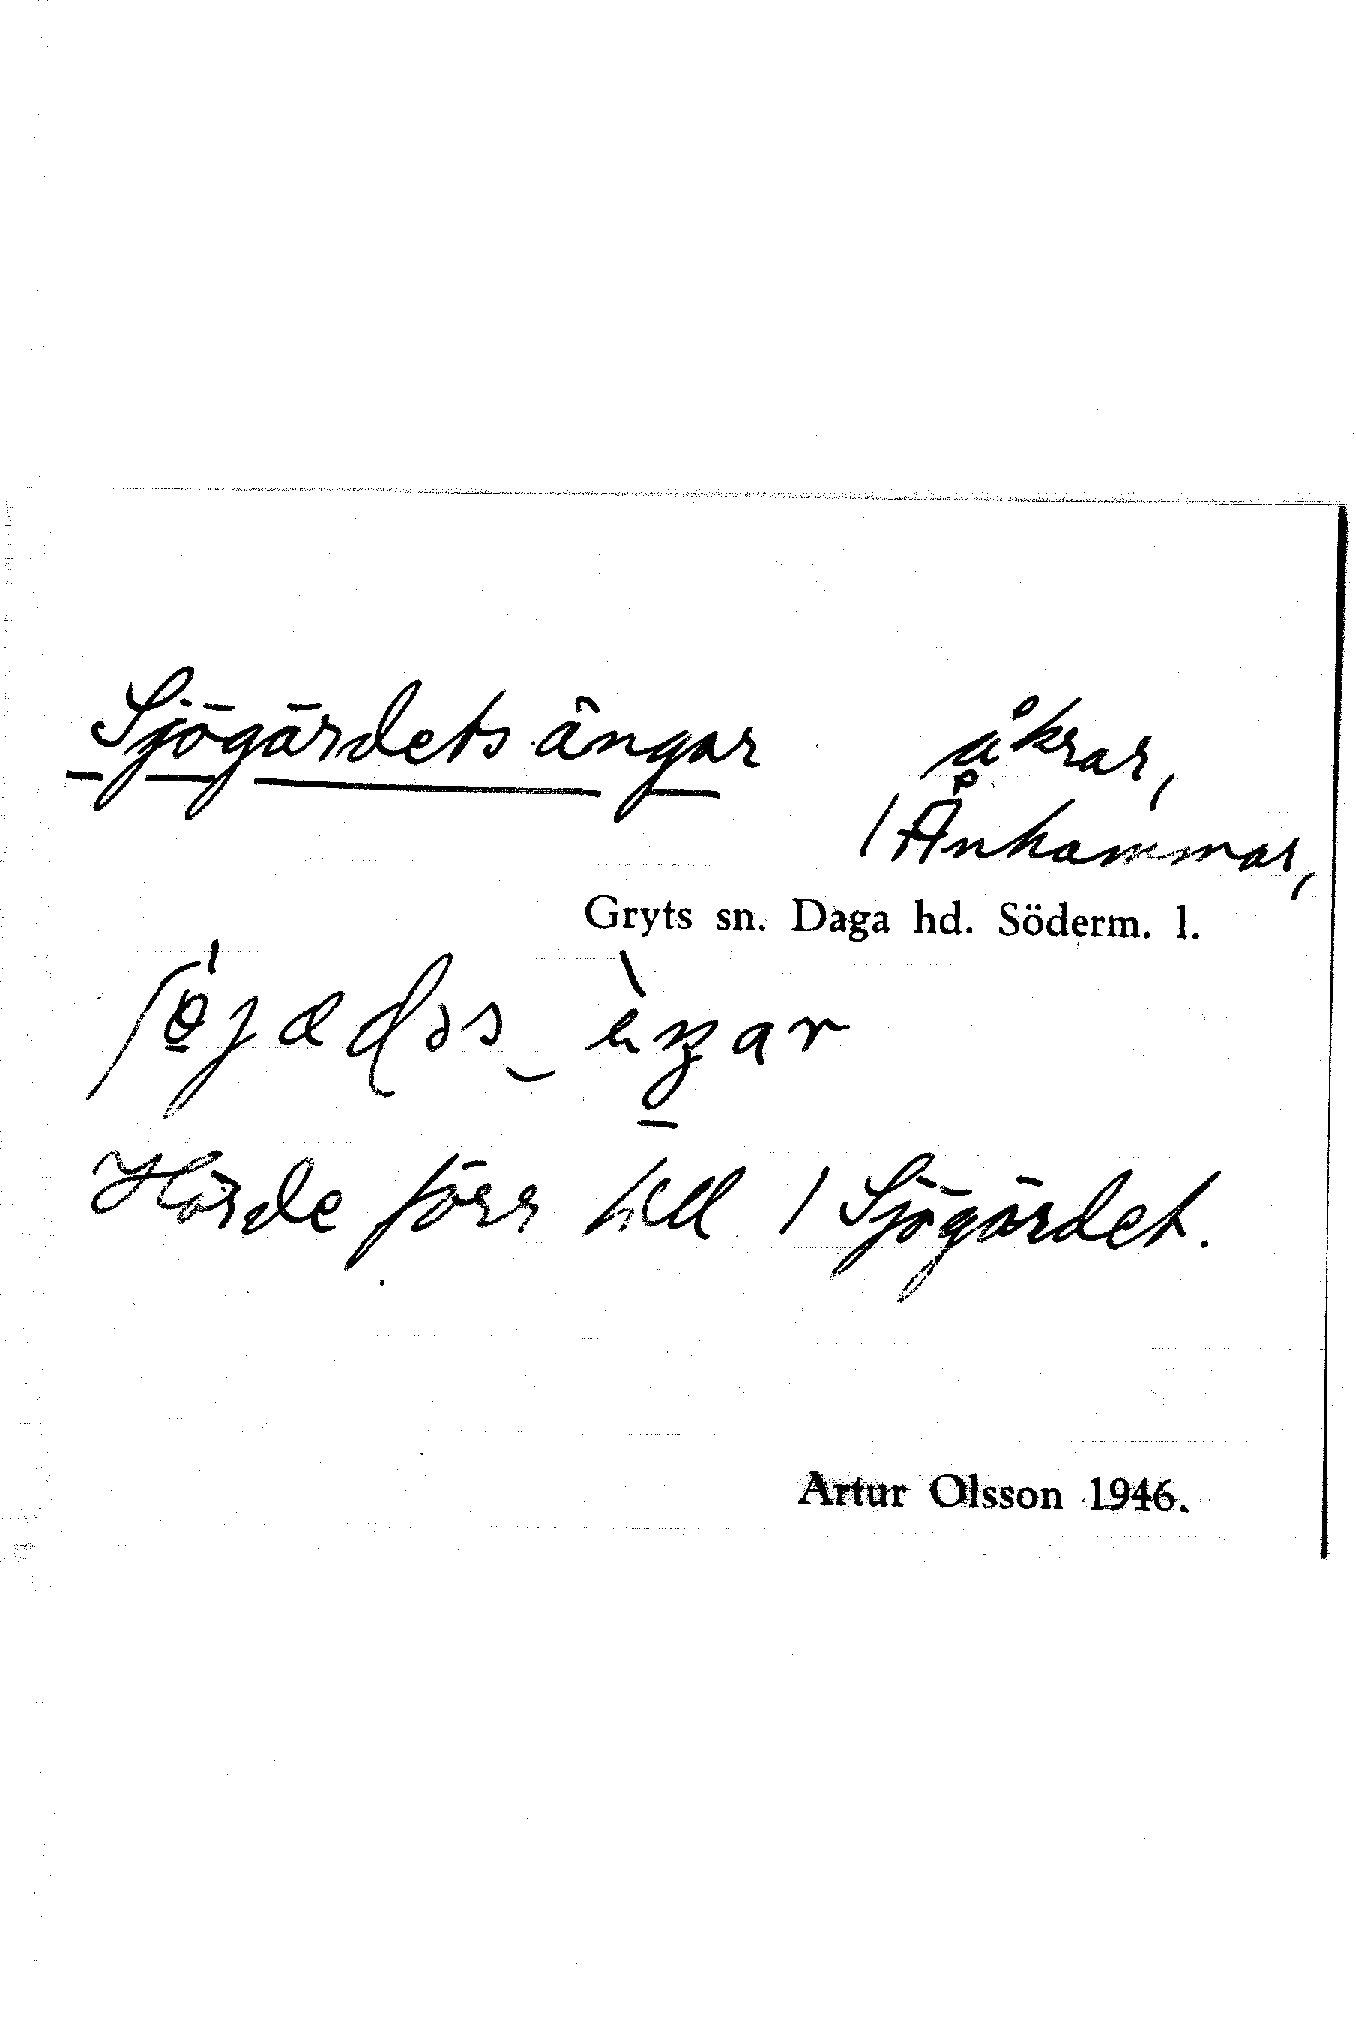 Sjögärdets ängar åkrar,
/ Ånhammar,
Gryts sn. Daga hd. Söderm. l.
Hörde förr till / Sjögärdet.
Artur Olsson 1946.